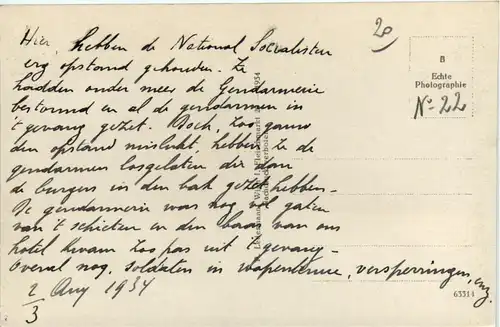 20
Hier, hebben de National Socialisten
erg opstand gehouden. Ze
hadden onder meer de Gendarmerie
bestormd en al de gendarmen in
't gevang gezet. Doch, zoo gauw
den opstand mislukt, hebben ze de
gendarmen losgelaten die dan
de burgers in den bak gezet hebben.
De gendarmerie was nog vol gaten
van 't schieten en den baas van ons
hotel kwam zoo pas uit 't gevang.
Overal nog, soldaten in wapentenue, versperringen, enz.
2/3 Aug 1934
B
Echte
Photographie
No. 22
Wien I, Fleischmarkt
1934
63314